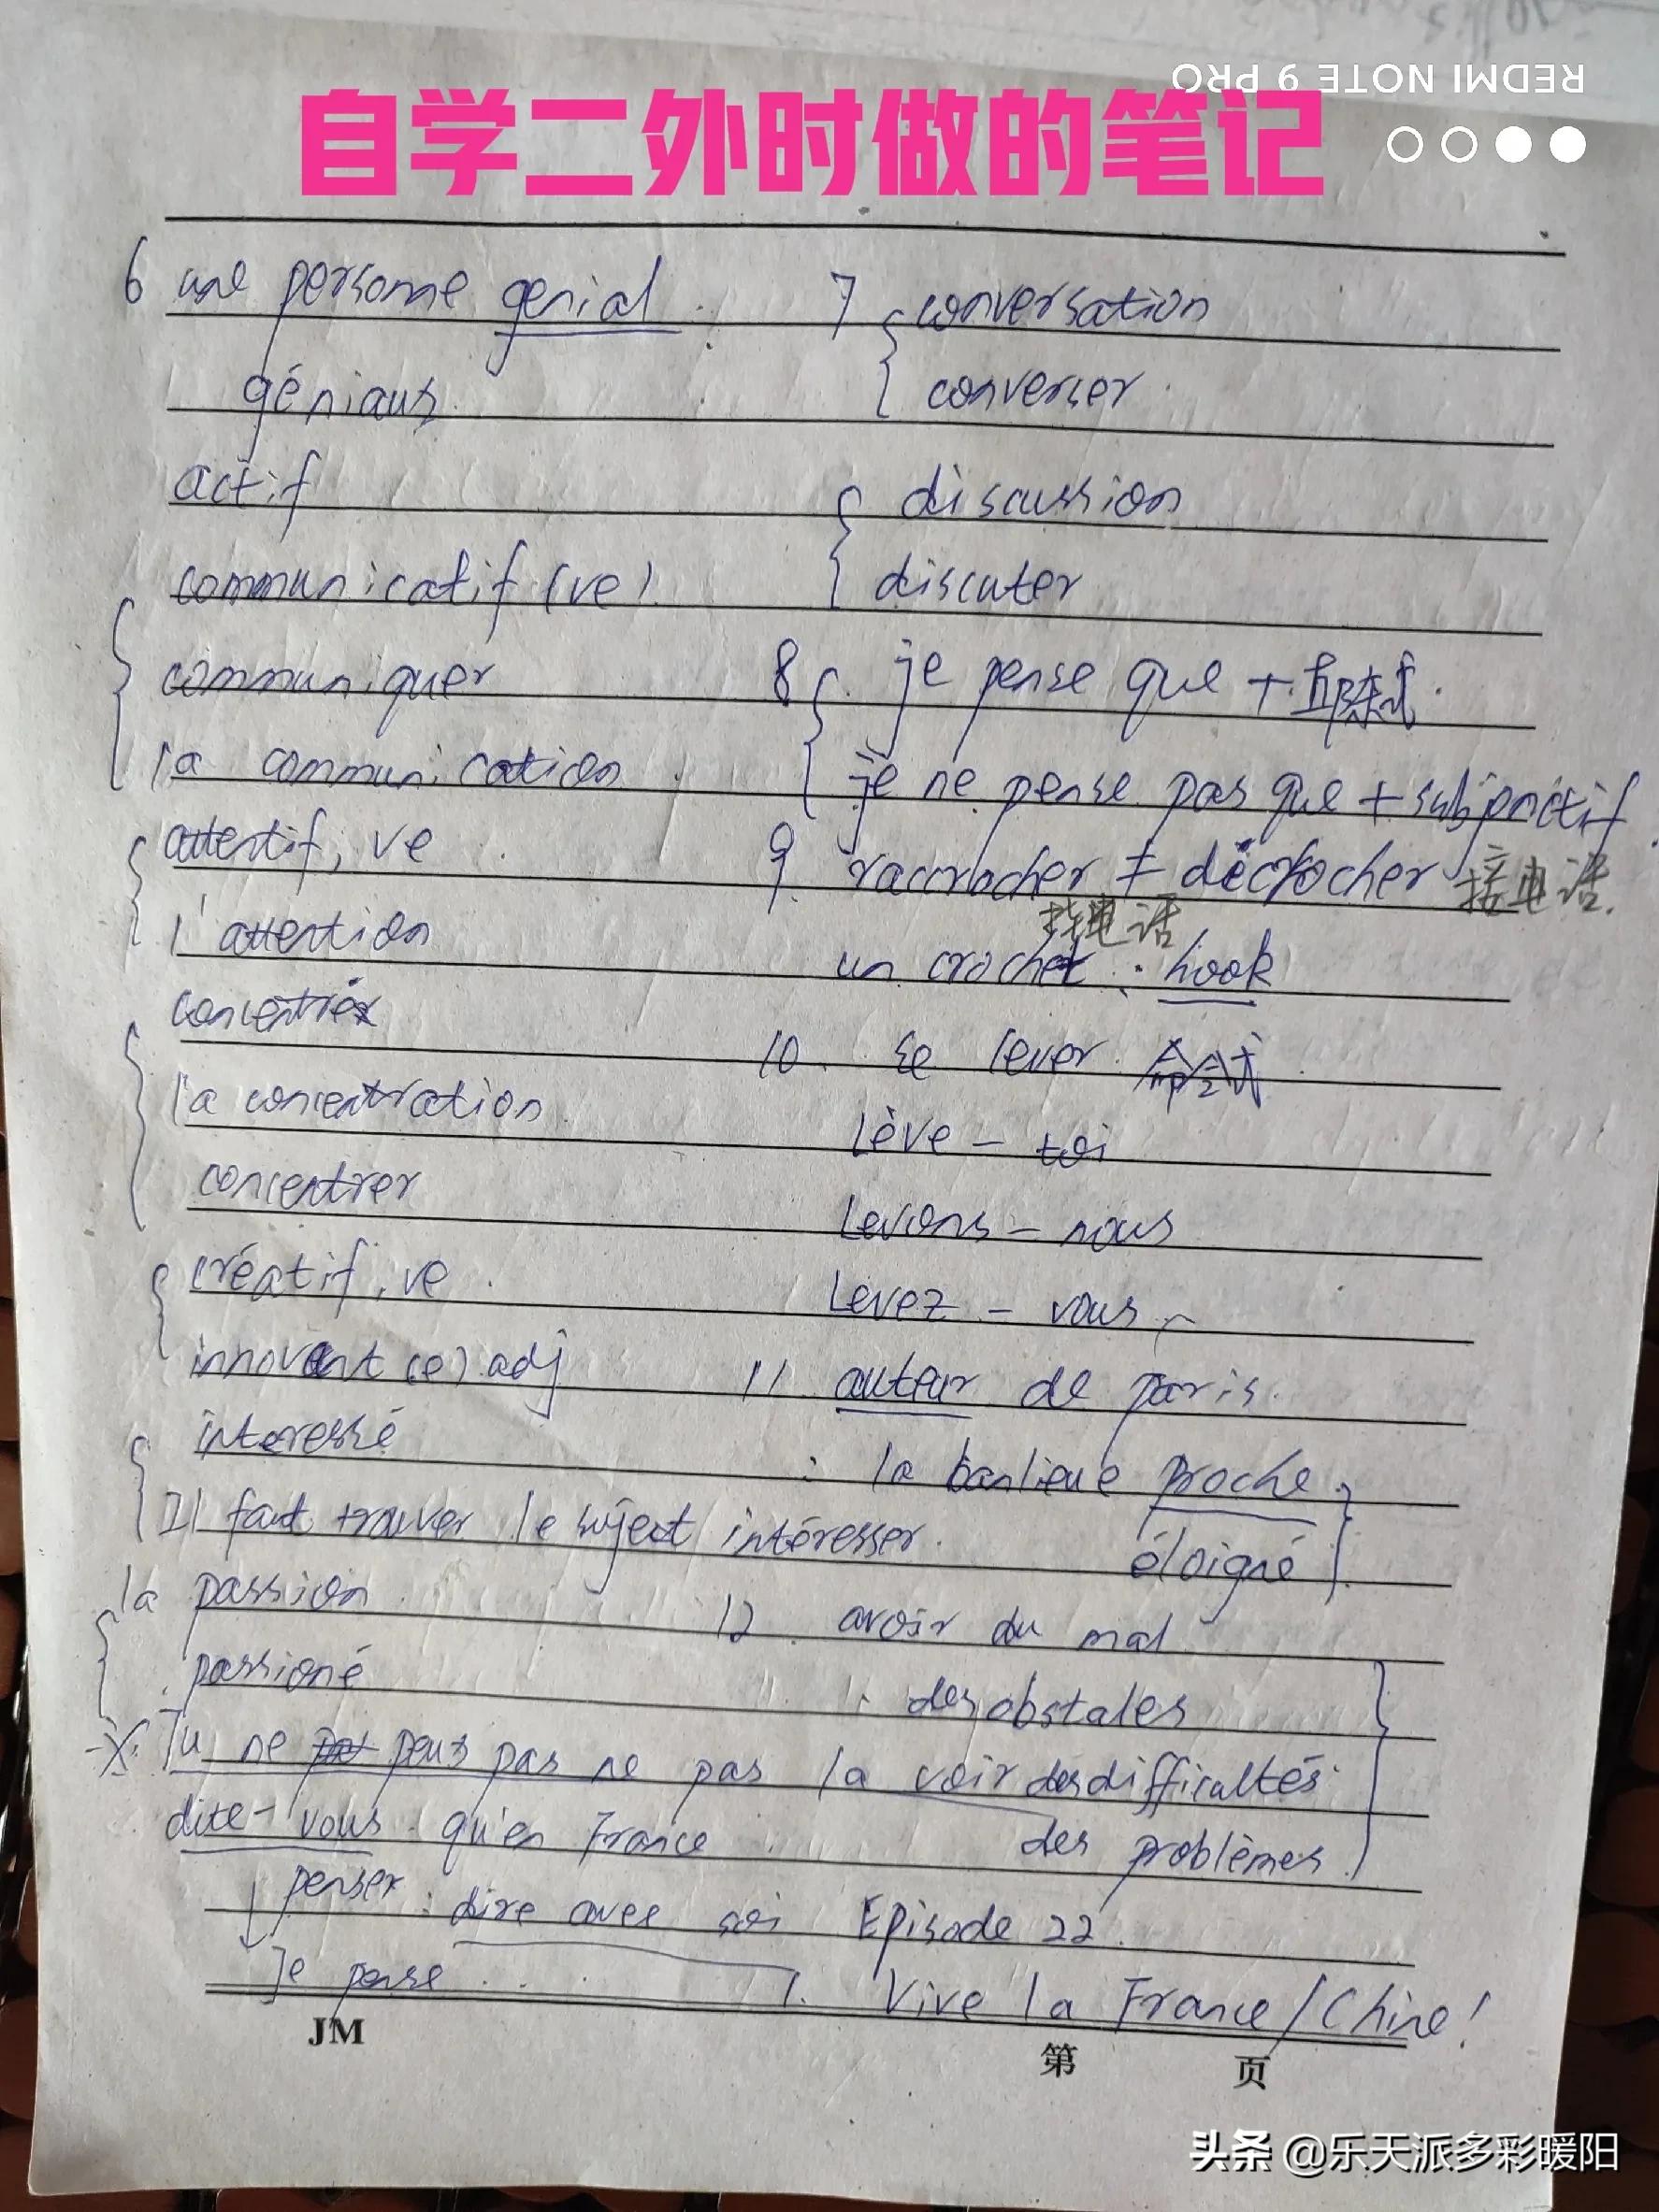 REDMI NOTE 9 PRO
自学二外时做的笔记
6 une personne genial.
géniaux
actif
communicatif (ve).
communiquer
la communication.
attentif, ve
l'attention
concentré
la concentration
concentrer
créatif, ve
innovant (e) adj
interessé
Il faut trouver le sujet intéresser.
la passion
passioné
Tu ne peux pas ne pas la voir
dite-vous qu'en France
penser : dire avec soi
Je pense ...
7 conversation
converser
discussion
discuter
8 je pense que + 直陈式.
je ne pense pas que + subjonctif
9. raccrocher ≠ décrocher 接电话.
挂电话
un crochet : hook
10. se lever 命令式
lève-toi
Levons-nous
Levez-vous
11. auteur de paris.
: la banlieue proche
éloigné
12. avoir du mal
des obstales
des difficultés
des problèmes
Episode 22
1. Vive la France/Chine!
JM
第 页
头条 @乐天派多彩暖阳